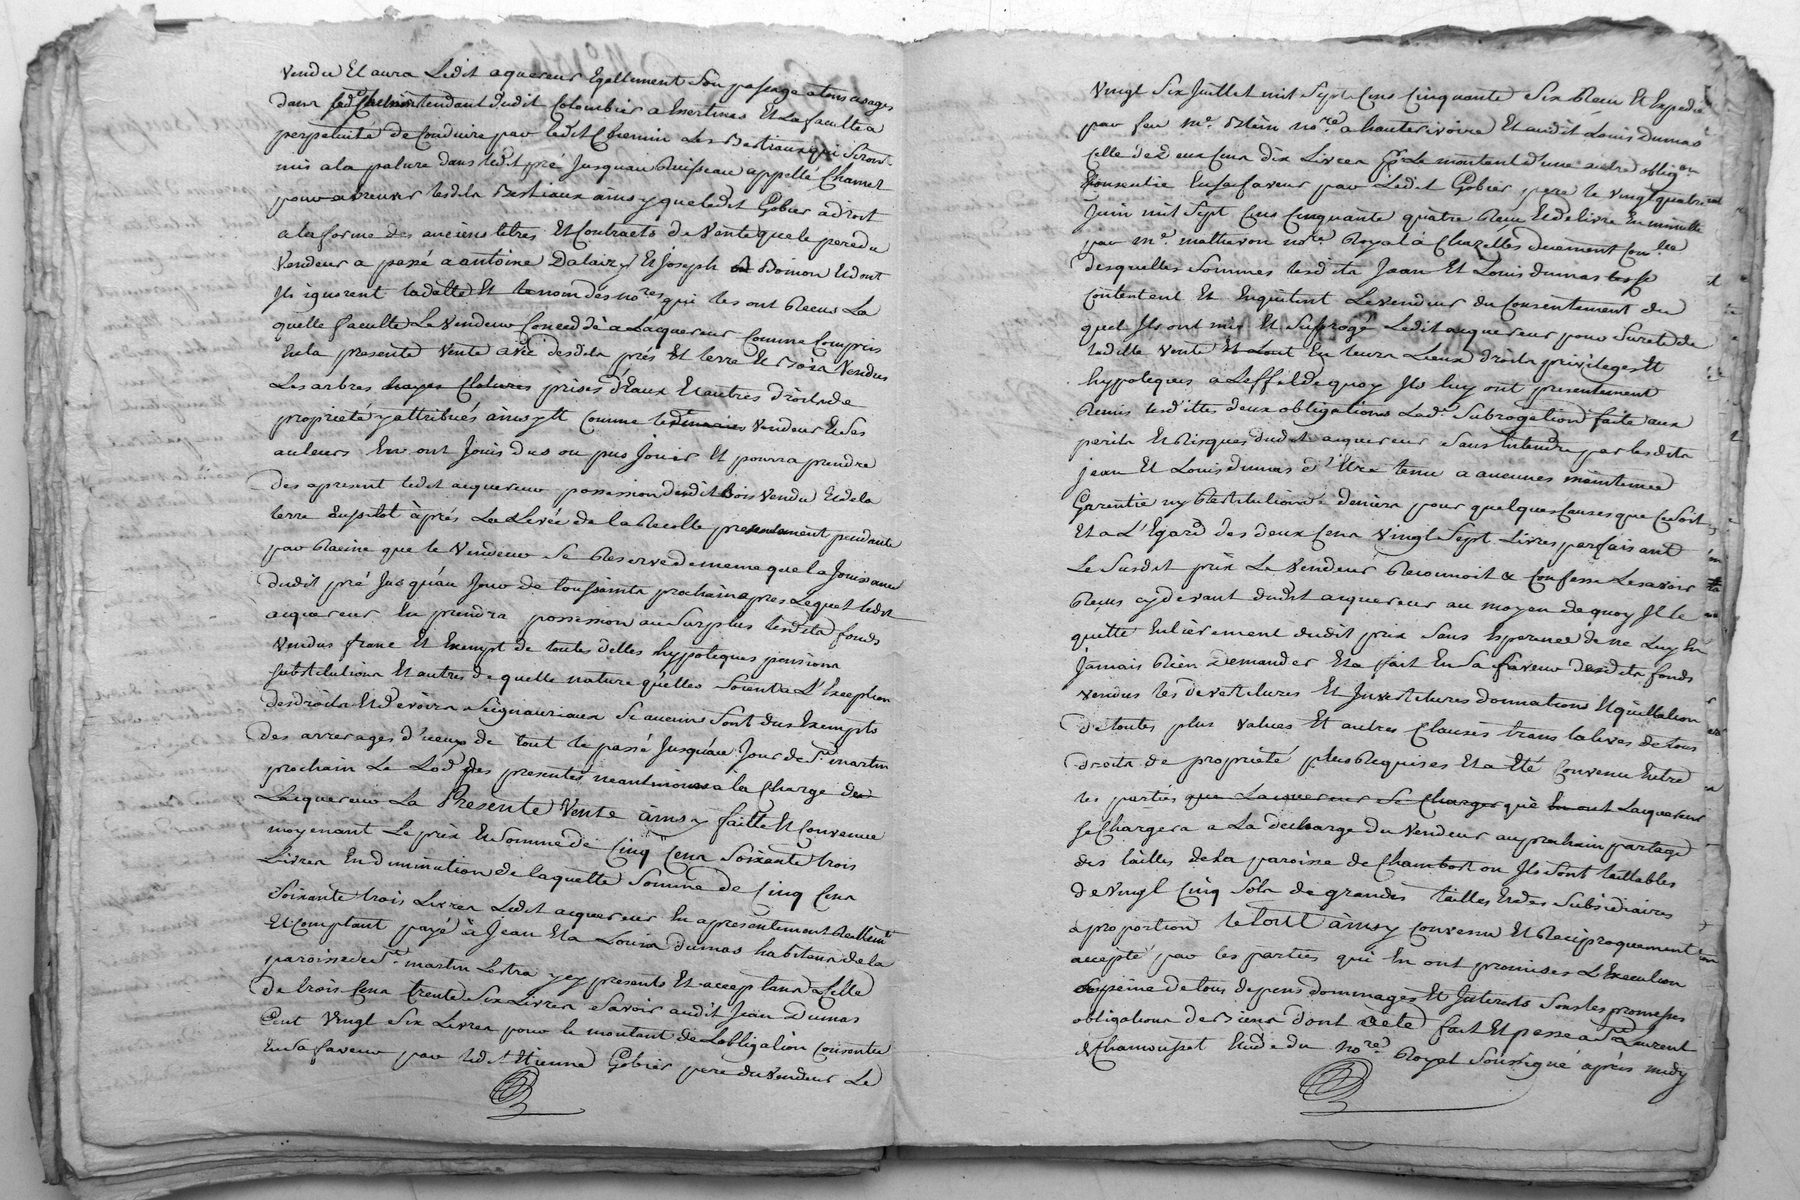 vendu Et aura Ledit aquereur Egallement Son passage a tous usages
dans led. Chemin tendant dudit Colombier a Essertines Et La faculté a
perpetuité de Conduire par ledit Chemin Les Bestiaux qui Seront
mis a la pature dans ledit pré Jusquau Ruisseau appellé Chamet
pour abreuver lesdits Bestiaux ainsy que ledit Gobier a droit
a la forme des anciens titres Et Contracts de Vente que le pere du
Vendeur a passé a antoine Dalaizy Et Joseph Boinon Et dont
Ils ignorent la datte Et le nom des nores qui les ont Receus La
quelle faculté Le Vendeur Conceddé a Lacquereur Comme Compris
En la presente Vente avec desdits prés Et terre Et Bois Vendus
Les arbres hayes Clotures prises d'Eaux Et autres droits de
proprieté y attribués ainsy Et Comme le Vendeur Et Ses
auteurs En ont Jouis dus ou pus Jouir Et pourra prendre
des apresent ledit acquereur possession dudit Bois Vendu Et de la
terre aussitot après La Levée de la Recolte presentement pendante
par Racine que le Vendeur Se Reserve de meme que la Jouissance
dudit pré Jusqu'au Jour de toussaints prochain apres Lequel ledit
acquereur En prendra possession au Surplus lesdits fonds
Vendus franc Et Exempt de toutes dettes hypoteques pensions
substitutions Et autres de quelle nature qu'elles Soient a L'Exception
des droits Et devoirs Seigneuriaux Si aucuns Sont dus Exempts
des arrerages d'iceux de tout le passé Jusqu'au Jour de St. martin
prochain Le Lod des presentes neantmoins à la Charge de
Lacquereur La Presente Vente ainsy faitte Et Convenue
moyenant Le prix Et Somme de Cinq Cens Soixante trois
Livres En diminution de laquelle Somme de Cinq Cens
Soixante trois Livres Ledit acquereur En a presentement Reellemt
Et Comptant payé à Jean Et a Louis Dumas habitans de la
paroisse de St. martin Lestra y ey presents Et acceptans Celle
de trois Cens trente Six Livres Savoir audit Jean Dumas
Cent Vingt Six Livres pour le montant de Lobligation Consentie
En Sa faveur par ledit Etienne Gobier pere du Vendeur Le
Vingt Six Juillet mil Sept Cens Cinquante Six Receu Et Expedié
par feu Me. Blein nore. a hauterivoire Et audit Louis Dumas
Celle de Deux Cens dix Livres pr. Le montant d'une autre obligon
Consentie En Sa faveur par Ledit Gobier pere le Vingt quatre
Juin mil Sept Cens Cinquante quatre Receu Et delivré En minutte
par Me. matheron nore. Royal à Chazelles duement Con.lée
desquelles Sommes lesdits Jean Et Louis dumas se
Contentent Et En quittent Le vendeur du Consentement du
quel Ils ont mis Et Subrogé Ledit acquereur pour Sureté de
ladille Vente En leurs Lieux droits privileges Et
hypoteques a Leffet de quoy Ils luy ont presentement
Remis lesdittes deux obligations Lad. Subrogation faite aux
perils Et Risques dudit acquereur Sans Entendre par lesdits
Jean Et Louis dumas d'Etre tenu a aucunes maintenue
Garantie ny Restitution de deniers pour quelques Causes que Ce Soit
Et a L'Egard des deux Cens Vingt Sept Livres parfaisant
Le Susdit prix Le Vendeur Reconnoit & Confesse Les avoir
Reçus cy devant dudit acquereur au moyen de quoy Il le
quitte Entièrement dudit prix Sans Esperance de ne Luy En
Jamais Rien Demander Et a fait En Sa faveur desdits fonds
Vendus les devestitures Et Investitures donnations Et quittation
de toutes plus values Et autres Clauses translatives de tous
droits de proprieté plus Requises Et a Eté Convenu Entre
les parties que Lacquereur Se Charger que Lacquereur
se Chargera a La decharge du Vendeur au prochain partage
des tailles de la paroisse de Chambost ou Ils Sont taillables
de Vingt Cinq Sols de grandes tailles Et des Subsidiaires
a proportion le tout ainsy Convenu Et Reciproquement
accepté par les parties qui En ont promises L'Execution
a peine de tous depens dommages Et Interets Sous les promesses
obligations de Biens dont acte fait Et passé a St Laurent
de Chamousset Etude du nore. Royal Soussigné après midy